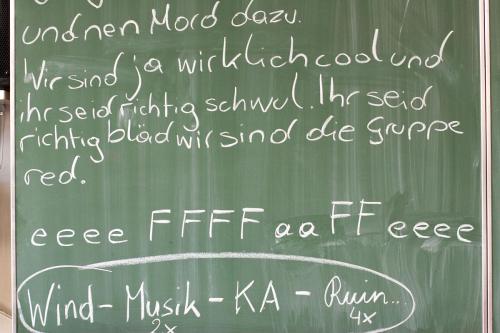 und nen Mord dazu.
Wir sind ja wirklich cool und
ihr seid richtig schwul. Ihr seid
richtig blöd wir sind die Gruppe
red.
eeee FFFF aa FF eeee
Wind - Musik - KA - Ruin...
2x 4x